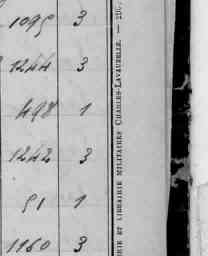 1095 3
1244 3
498 1
1242 3
51 1
1160 3
RIE ET LIBRAIRIE MILITAIRES CHARLES-LAVAUZELLE. —